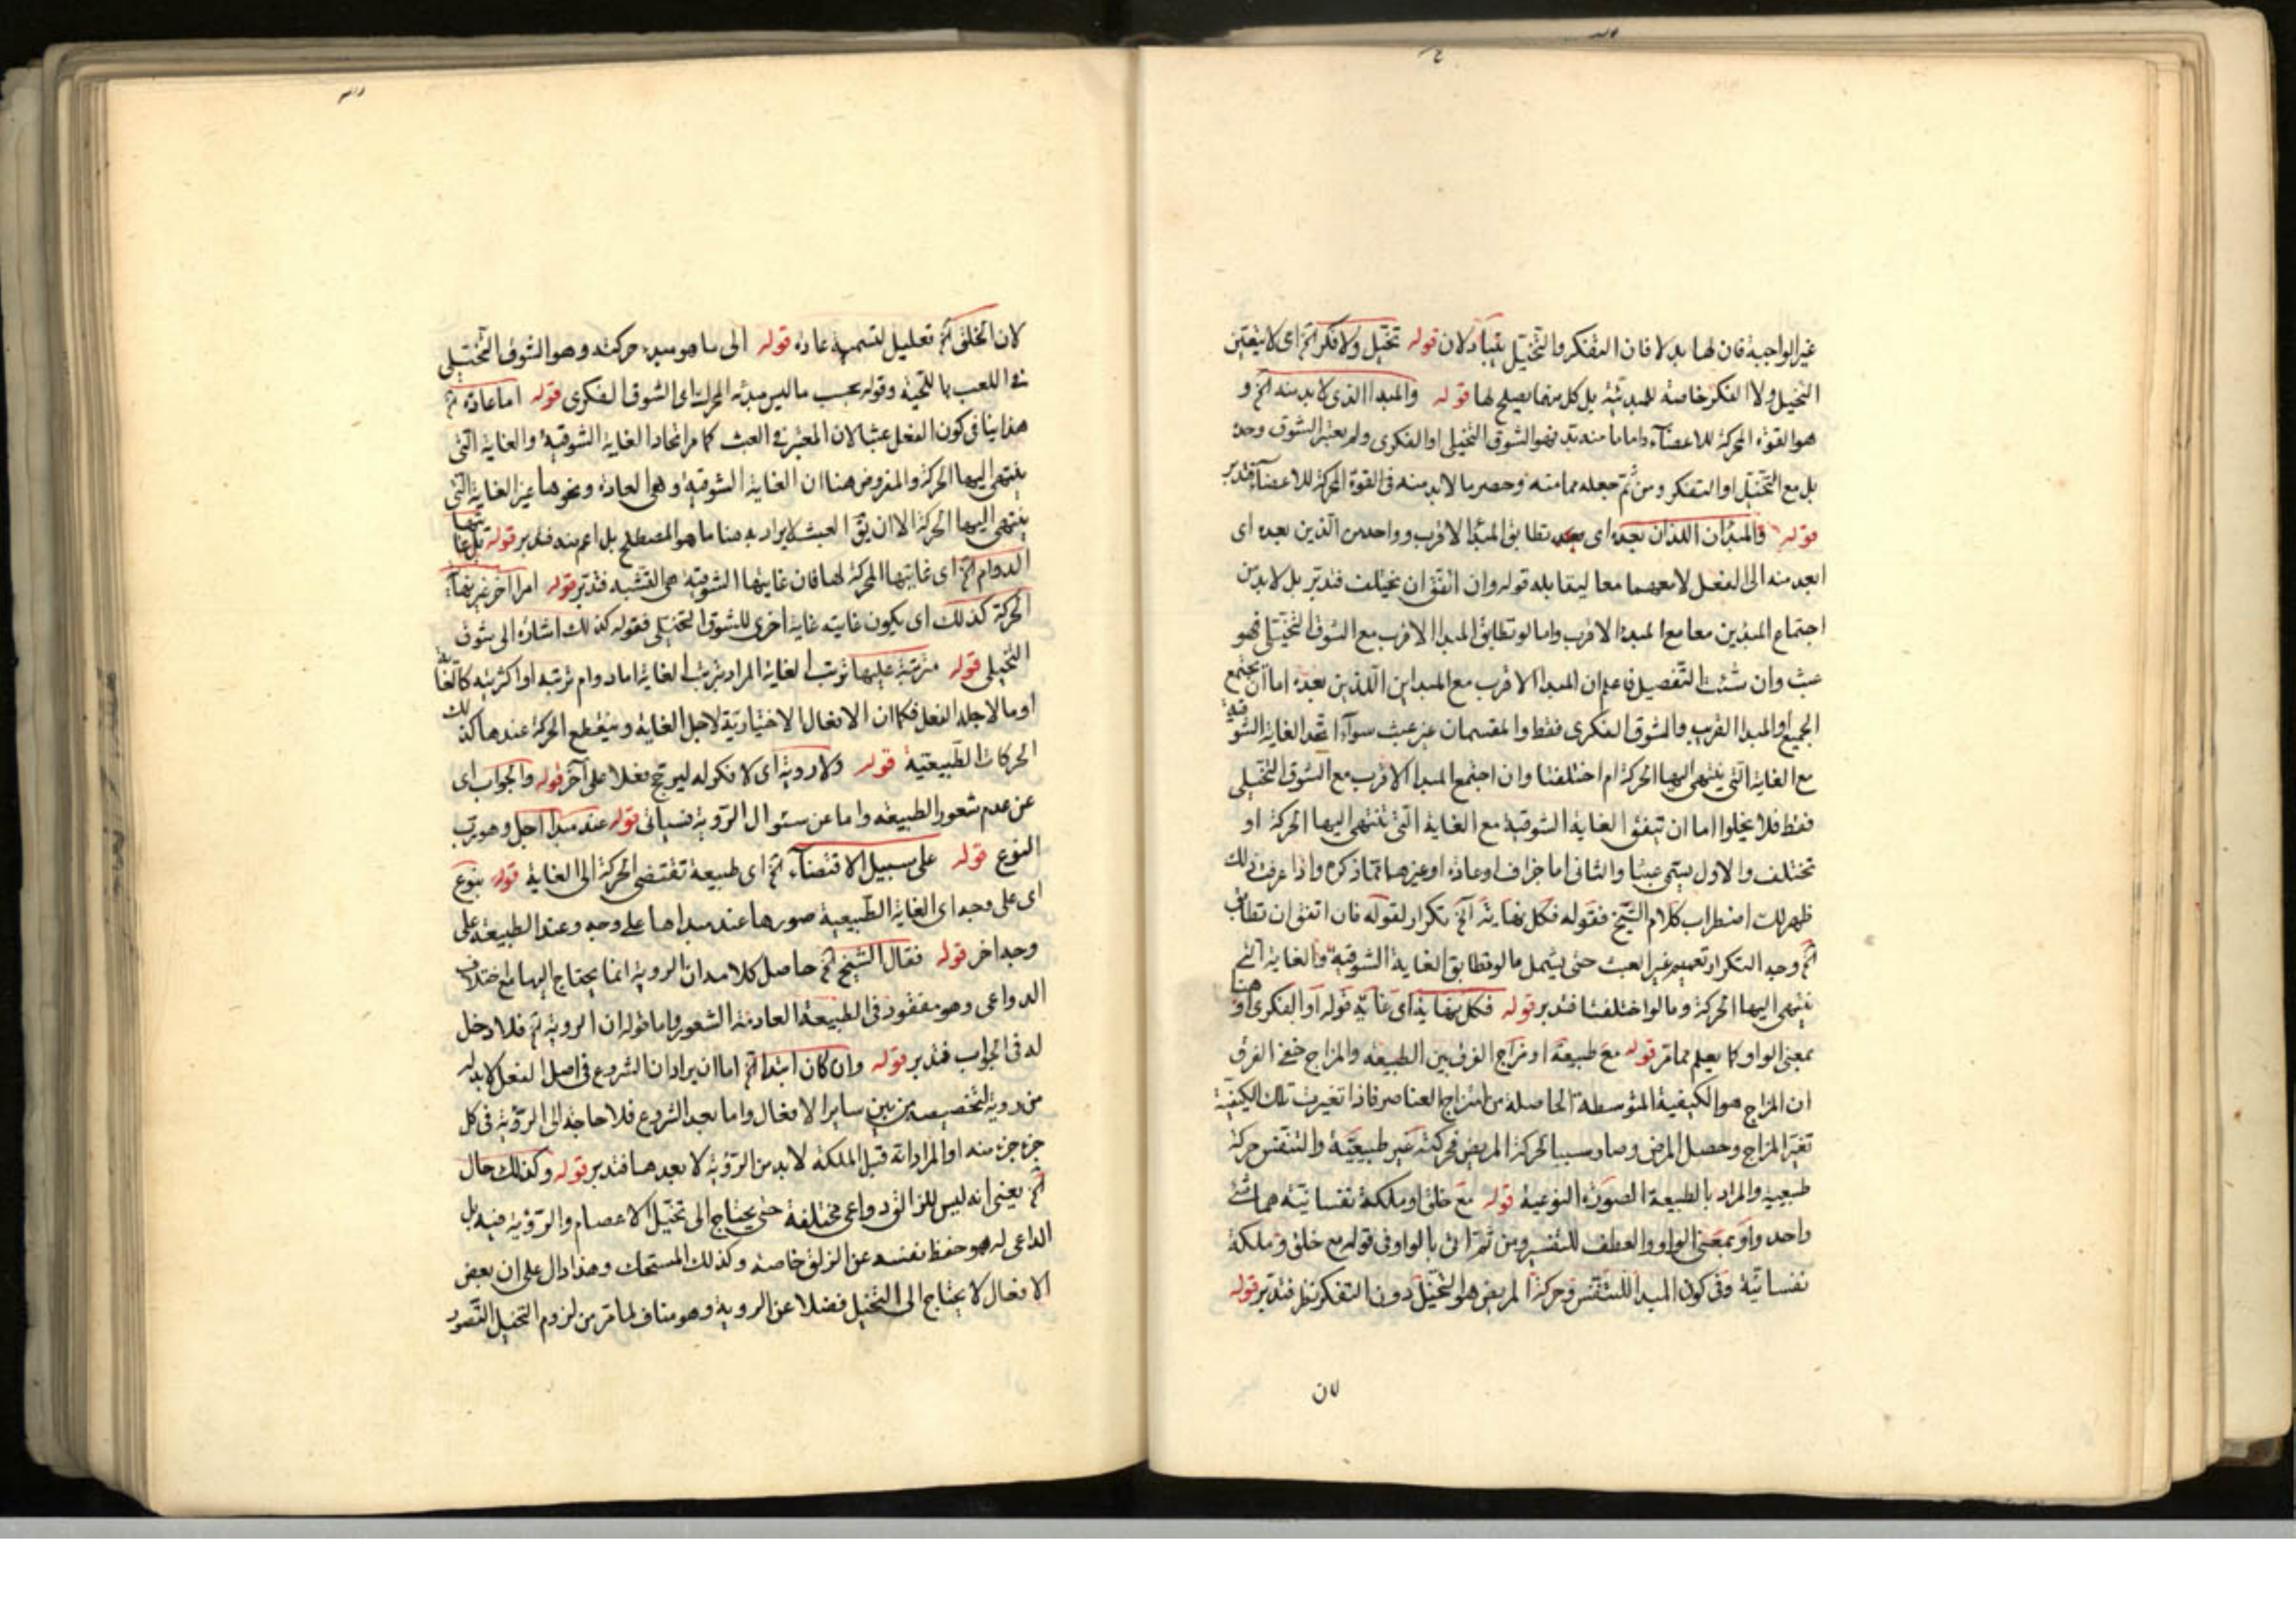 غير الواجبة فان لها بدلا فان التفكر والتخيل يتبادلان قوله تخيل ولا فكر الخ اى لا يتعين
التخيل ولا الفكر خاصة للمبدئية بل كل منهما يصلح لها قوله والمبدا الذى لا بد منه الخ و
هو القوة المحركة للاعضاء واما ما منه بد فهو الشوق التخيلى او الفكرى ولم يعتبر الشوق وحده
بل مع التخيل او التفكر ومن ثم جعله مما منه وحصر ما لا بد منه فى القوة المحركة للاعضاء فتدبر
قوله والمبدان اللذان بعده اى تطابق المبدا الاقرب وواحد من الذين بعده اى
ابعد منه الى الفعل لا معهما معا ليقابله قوله وان اتفق ان يختلف فتدبر بل لا بد من
اجتماع المبدين معا مع المبدء الاقرب واما لو تطابق المبدا الاقرب مع الشوق التخيلى فهو
عبث وان شئت التفصيل فاعلم ان المبدا الاقرب مع المبداين اللذين بعده اما ان يجتمع
الجميع او المبدا القريب والشوق الفكرى فقط والقسمان غير عبث سواء اتحد الغاية الشوقية
مع الغاية التى ينتهى اليها الحركة ام اختلفتا وان اجتمع المبدا الاقرب مع الشوق التخيلى
فقط فلا يخلوا اما ان تتفق الغاية الشوقية مع الغاية التى تنتهى اليها الحركة او
تختلف والاول يسمى عبثا والثانى اما جزاف او عادة او غيرهما مما ذكره واذا عرفت ذلك
ظهر لك اضطراب كلام الشيخ فقوله فكل نهاية الخ تكرار لقوله فان اتفق ان تطابق
الخ وجه التكرار تعميم غير العبث حتى يشمل ما لو تطابق الغاية الشوقية والغاية التى
تنتهى اليها الحركة وما لو اختلفتا فتدبر قوله فكل نهاية اى غاية قوله او الفكرى او هنا
بمعنى الواو كما يعلم مما مر قوله مع طبيعة او مزاج الفرق بين الطبيعة والمزاج خفى الفرق
ان المزاج هو الكيفية المتوسطة الحاصلة من امتزاج العناصر فاذا تغيرت تلك الكيفية
تغير المزاج وحصل المرض وصار سببا لحركة المريض فحركته غير طبيعية والتنفس حركة
طبيعية والمراد بالطبيعة الصورة النوعية قوله مع خلق او ملكة نفسانية هما شئ
واحد واو بمعنى الواو والعطف للتفسير ومن ثم اتى بالواو فى قوله مع خلق وملكة
نفسانية وفى كون المبدا للتنفس وحركة المريض هو التخيل دون التفكر نظر فتدبر قوله
لان
لان الخلق الخ تعليل لتسمية عادة قوله الى ما هو مبدء حركته وهو الشوق التخيلى
فى اللعب باللحية وقوله بحسب ما ليس مبدئه المحرك اى الشوق الفكرى قوله اما عادة الخ
هذا ينافى كون الفعل عبثا لان المعتبر فى العبث كما مر اتحاد الغاية الشوقية والغاية التى
ينتهى اليها الحركة والمفروض هنا ان الغاية الشوقية وهى العادة ونحوها غير الغاية التى
ينتهى اليها الحركة الا ان يق العبث لا يراد به هنا ما هو المصطلح بل اعم منه فتدبر قوله بل غايتها
الدوام الخ اى غايتها المحركة لها فان غايتها الشوقية هى التشبه فتدبر قوله امرا اخر غير نهاية
الحركة كذلك اى يكون غايته غاية اخرى للشوق التخيلى فقوله كذلك اشارة الى شوق
التخيلى قوله مترتبة عليها ترتب الغاية المراد بترتب الغاية اما دوام ترتبه او اكثريته كالغاية
او ما لاجله الفعل فكما ان الافعال الاختيارية لاجل الغاية وينقطع الحركة عندها كذلك
الحركات الطبيعية قوله ولا روية اى لا فكر له ليرجح فعلا على آخر قوله والجواب اى
عن عدم شعور الطبيعة واما عن سئوال الروية فسياتى قوله عند مبدا اجل وهو رب
النوع قوله على سبيل الاقتضاء الخ اى طبيعة تقتضى الحركة الى الغاية قوله بنوع
اى على وجه اى الغاية الطبيعية صورها عند مبداها على وجه وعند الطبيعة على
وجه اخر قوله فقال الشيخ الخ حاصل كلامه ان الروية انما يحتاج اليها مع اختلاف
الدواعى وهو مفقود فى الطبيعة العادمة الشعور واما قوله ان الروية الخ فلا دخل
له فى الجواب فتدبر قوله وان كان ابتدا الخ اما ان يراد ان الشروع فى اصل الفعل لا بد له
من روية لتخصيصه من بين ساير الافعال واما بعد الشروع فلا حاجة الى الروية فى كل
جزء جزء منه او المراد انه قبل الملكة لا بد من الروية لا بعدها فتدبر قوله وكذلك حال
الخ يعنى انه ليس للزالق دواعى مختلفة حتى يحتاج الى تخيل الاعتصام والروية فيه بل
الداعى له هو حفظ نفسه عن الزلق خاصة وكذلك المستحك وهذا دال على ان بعض
الافعال لا يحتاج الى التخيل فضلا عن الروية وهو مناف لما مر من لزوم التخيل التصور